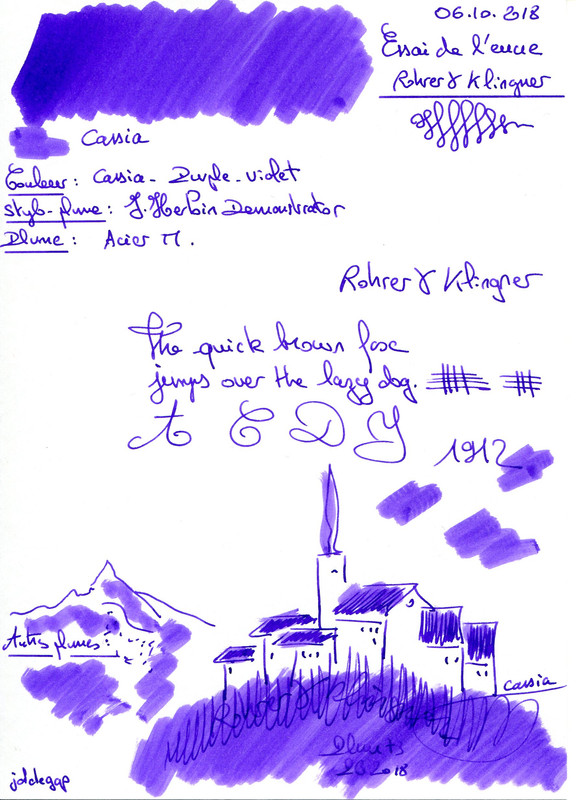 06.10.2018
Essai de l'encre
Rohrer & Klingner
Cassia
Couleur : Cassia - Purple - violet
Stylo-plume : J. Herbin Demonstrator
Plume : Acier M.
Rohrer & Klingner
The quick brown fox
jumps over the lazy dog.
A C D Y
1912
Autres plumes :
Cassia
2018
joldegap